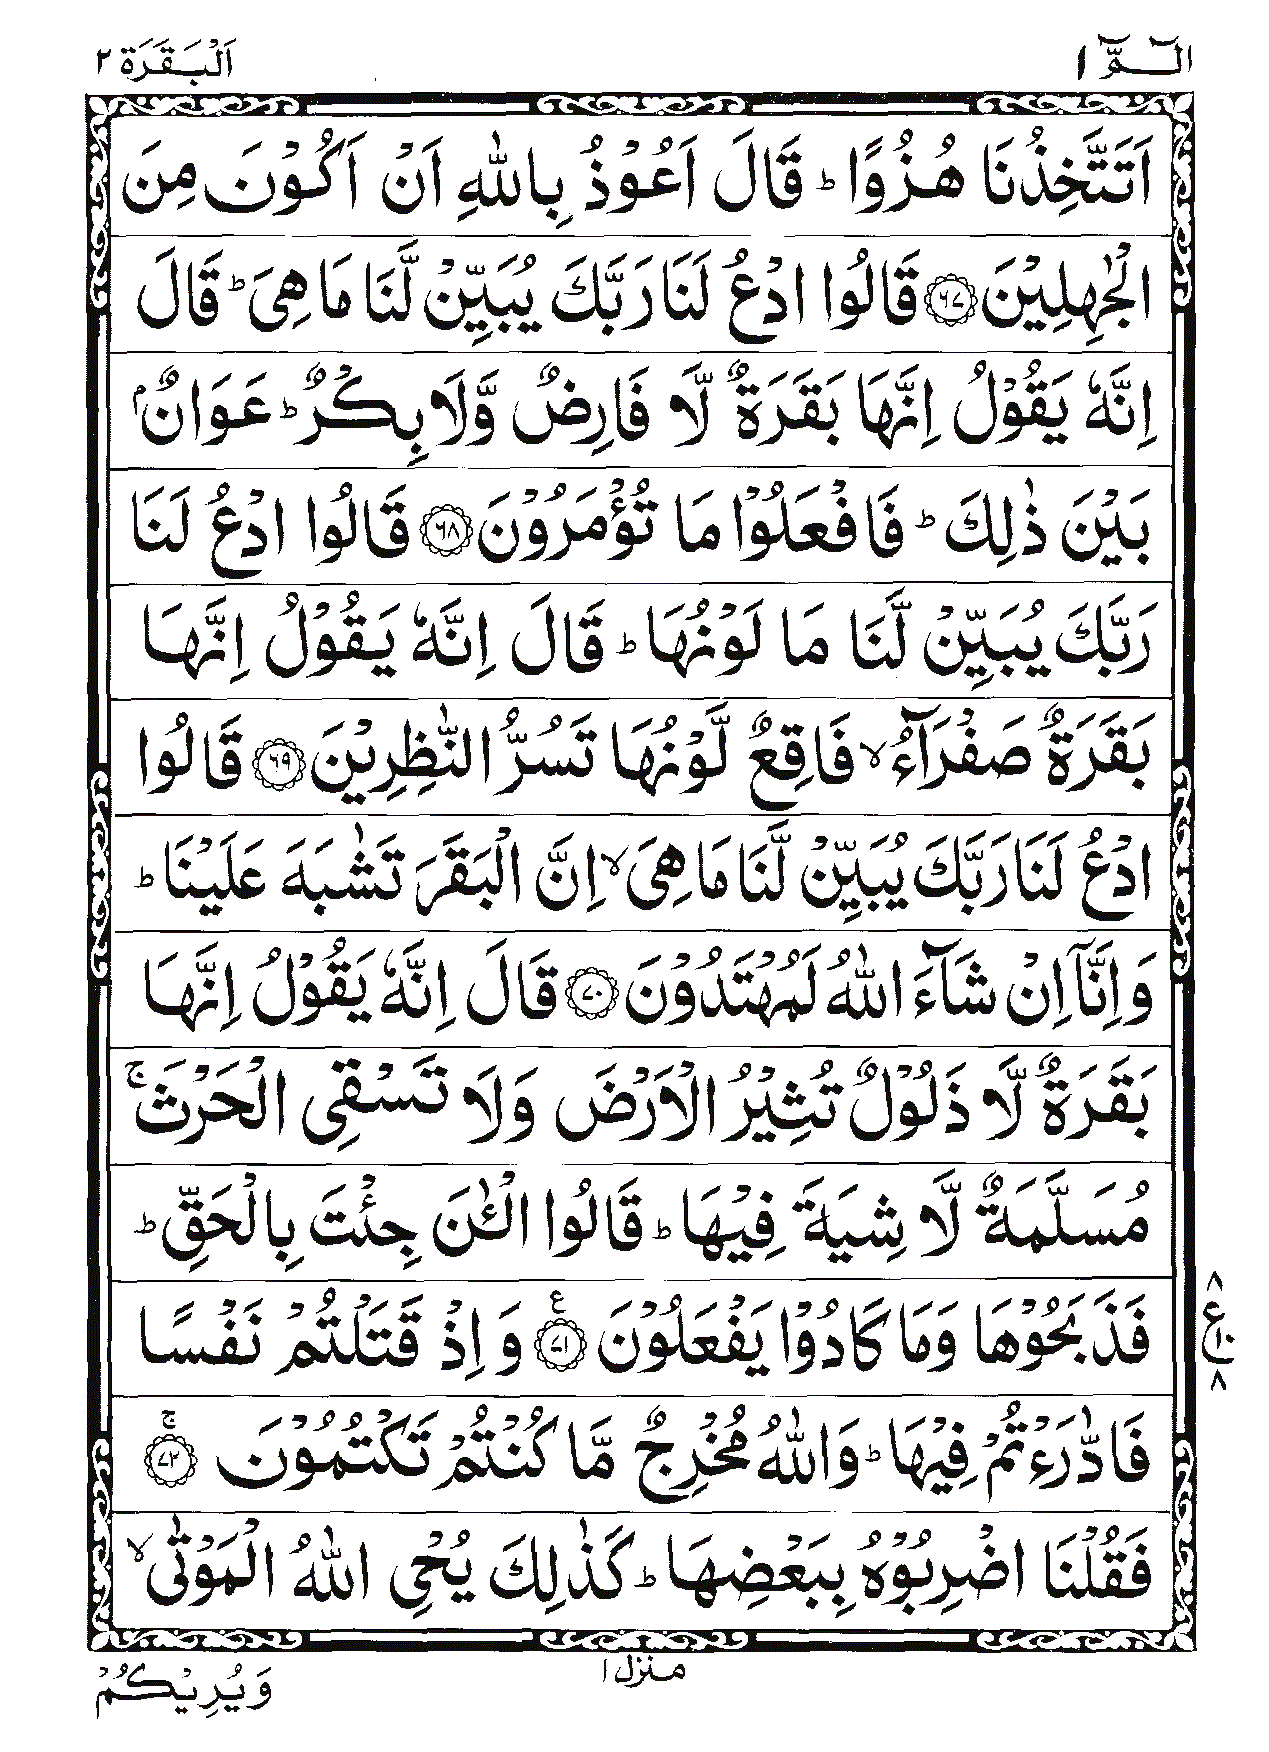 الٓـمّٓ ١
اَلْبَقَرَة ٢
اَتَتَّخِذُنَا هُزُوًا ؕ قَالَ اَعُوْذُ بِاللّٰهِ اَنْ اَكُوْنَ مِنَ
الْجٰهِلِيْنَ ﴿۶۷﴾ قَالُوا ادْعُ لَنَا رَبَّكَ يُبَيِّنْ لَّنَا مَا هِيَ ؕ قَالَ
اِنَّهٗ يَقُوْلُ اِنَّهَا بَقَرَةٌ لَّا فَارِضٌ وَّلَا بِكْرٌ ؕ عَوَانٌۢ
بَيْنَ ذٰلِكَ ؕ فَافْعَلُوْا مَا تُؤْمَرُوْنَ ﴿۶۸﴾ قَالُوا ادْعُ لَنَا
رَبَّكَ يُبَيِّنْ لَّنَا مَا لَوْنُهَا ؕ قَالَ اِنَّهٗ يَقُوْلُ اِنَّهَا
بَقَرَةٌ صَفْرَآءُ ۙ فَاقِعٌ لَّوْنُهَا تَسُرُّ النّٰظِرِيْنَ ﴿۶۹﴾ قَالُوا
ادْعُ لَنَا رَبَّكَ يُبَيِّنْ لَّنَا مَا هِيَ ۙ اِنَّ الْبَقَرَ تَشٰبَهَ عَلَيْنَا ؕ
وَاِنَّاۤ اِنْ شَآءَ اللّٰهُ لَمُهْتَدُوْنَ ﴿۷۰﴾ قَالَ اِنَّهٗ يَقُوْلُ اِنَّهَا
بَقَرَةٌ لَّا ذَلُوْلٌ تُثِيْرُ الْاَرْضَ وَلَا تَسْقِى الْحَرْثَ ۚ
مُسَلَّمَةٌ لَّا شِيَةَ فِيْهَا ؕ قَالُوا الْـٰٔنَ جِئْتَ بِالْحَقِّ ؕ
فَذَبَحُوْهَا وَمَا كَادُوْا يَفْعَلُوْنَ ﴿۷۱﴾ ع وَاِذْ قَتَلْتُمْ نَفْسًا
٨ ع ١٠ ٨
فَادّٰرَءْتُمْ فِيْهَا ؕ وَاللّٰهُ مُخْرِجٌ مَّا كُنْتُمْ تَكْتُمُوْنَ ﴿۷۲﴾ ۚ
فَقُلْنَا اضْرِبُوْهُ بِبَعْضِهَا ؕ كَذٰلِكَ يُحْيِ اللّٰهُ الْمَوْتٰى ۙ
منزل ١
وَيُرِيْكُمْ